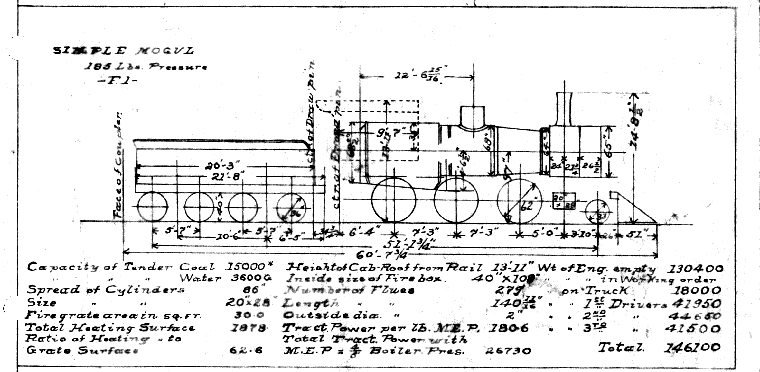 SIMPLE MOGUL
185 Lbs. Pressure
-F1-
Face of Coupler
20'-3"
21'-8"
12'-6 15/16"
9'-7"
14'-8 1/2"
65"
62"
5'-7" 5'-7" 6'-5" 6'-4" 7'-3" 7'-3" 5'-0" 3'-10" 51"
10'-6
51'-1 3/4"
60'-7 3/4"
Capacity of Tender Coal 15000# Height of Cab Roof from Rail 13'-11" Wt of Eng. empty 130400
" " Water 3600G Inside size of Fire box. 40"x108" " " " in Working order
Spread of Cylinders 86" Number of Flues 279 " on Truck 18000
Size " " 20"x28" Length " 140 11/16" " 1st Drivers 41950
Fire grate area in sq. ft. 30.0 Outside dia. " 2" " 2nd " 44650
Total Heating Surface 1878 Tract. Power per lb. M.E.P. 180.6 " 3rd " 41500
Ratio of Heating " to Total Tract. Power with Total 146100
Grate Surface 62.6 M.E.P = 4/5 Boiler Pres. 26730